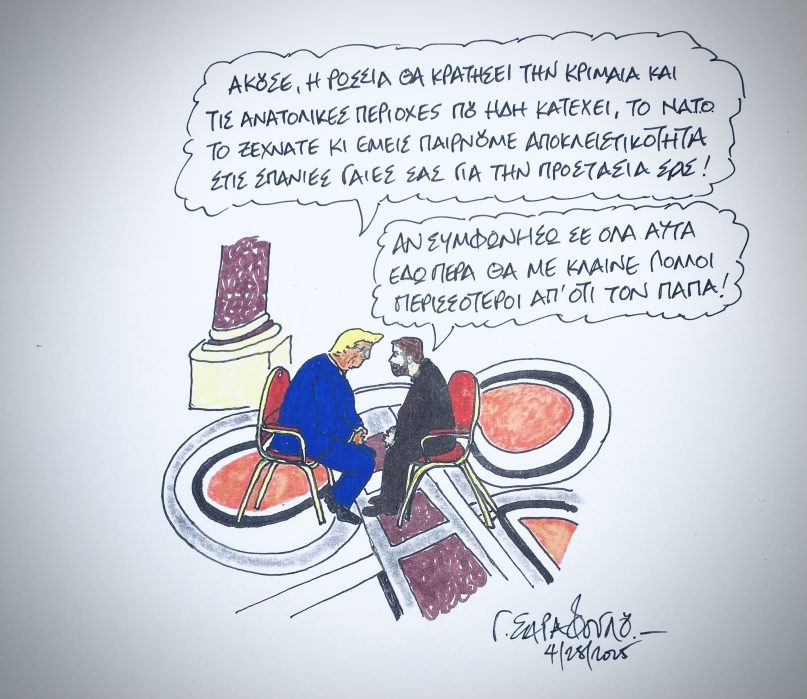 ΑΚΟΥΣΕ, Η ΡΩΣΣΙΑ ΘΑ ΚΡΑΤΗΣΕΙ ΤΗΝ ΚΡΙΜΑΙΑ ΚΑΙ
ΤΙΣ ΑΝΑΤΟΛΙΚΕΣ ΠΕΡΙΟΧΕΣ ΠΟΥ ΗΔΗ ΚΑΤΕΧΕΙ, ΤΟ ΝΑΤΟ
ΤΟ ΞΕΧΝΑΤΕ ΚΙ ΕΜΕΙΣ ΠΑΙΡΝΟΥΜΕ ΑΠΟΚΛΕΙΣΤΙΚΟΤΗΤΑ
ΣΤΙΣ ΣΠΑΝΙΕΣ ΓΑΙΕΣ ΣΑΣ ΓΙΑ ΤΗΝ ΠΡΟΣΤΑΣΙΑ ΣΑΣ!
ΑΝ ΣΥΜΦΩΝΗΣΩ ΣΕ ΟΛΑ ΑΥΤΑ
ΕΔΩ ΠΕΡΑ ΘΑ ΜΕ ΚΛΑΙΝΕ ΠΟΛΛΟΙ
ΠΕΡΙΣΣΟΤΕΡΟΙ ΑΠ' ΟΤΙ ΤΟΝ ΠΑΠΑ!
Γ. ΣΑΡΑΦΟΥΛΟΥ.
4/28/2025